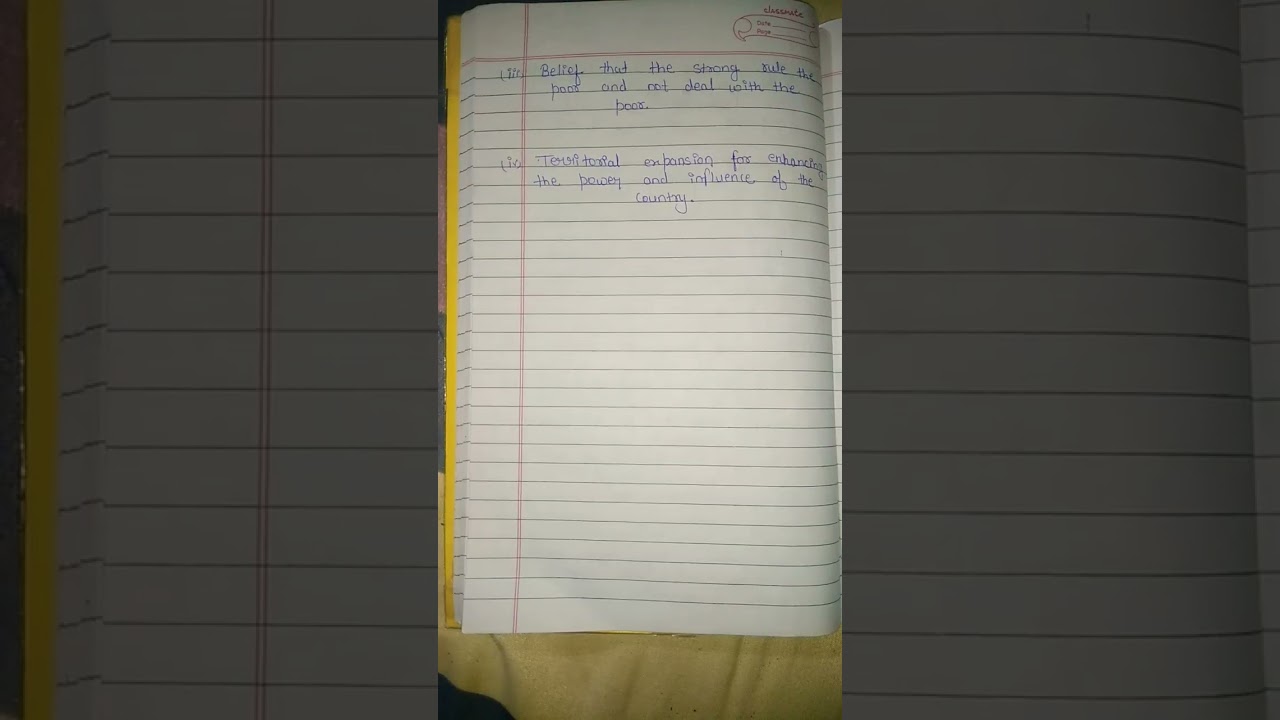 classmate
Date
Page
(iii) Belief that the strong rule the
poor and not deal with the
poor.
(iv) Territorial expansion for enhancing
the power and influence of the
country.